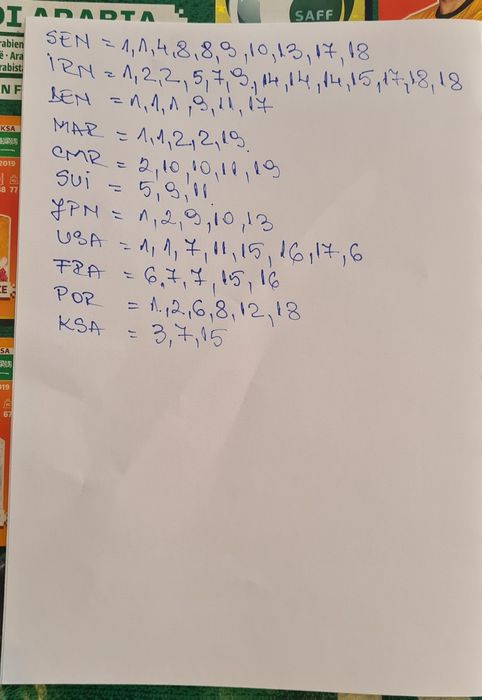 DI ARABIA
SAFF
KSA
2019
SEN = 1,1,4,8,8,9,10,13,17,18
IRN = 1,2,2,5,7,9,14,14,14,15,17,18,18
DEN = 1,1,1,9,11,17
MAR = 1,1,2,2,19
CMR = 2,10,10,11,19
SUI = 5,9,11
JPN = 1,2,9,10,13
USA = 1,1,7,11,15,16,17,6
FRA = 6,7,7,15,16
POR = 1,2,6,8,12,18
KSA = 3,7,15